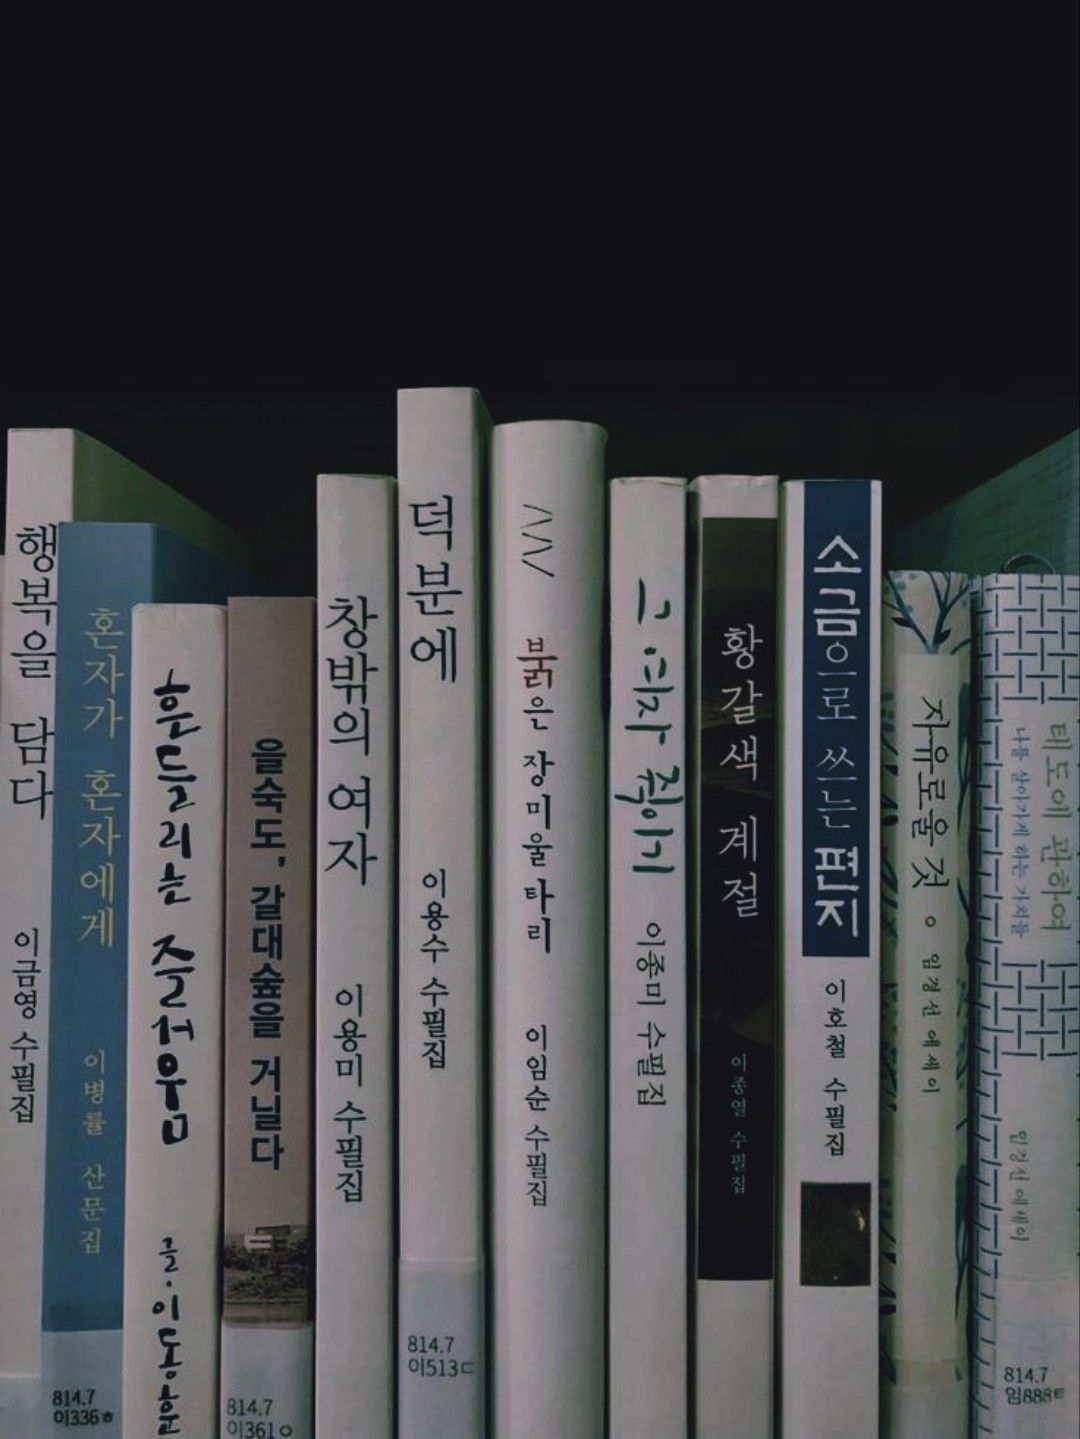 행복을 담다
이금영 수필집
혼자가 혼자에게
이병률 산문집
814.7
이336ㅎ
흔들리는 즐거움
글·이동훈
을숙도, 갈대숲을 거닐다
814.7
이361ㅇ
창밖의 여자
이용미 수필집
덕분에
이용수 수필집
814.7
이513ㄷ
붉은 장미울타리
이임순 수필집
그 의자 죽이기
이종미 수필집
황갈색 계절
이종열 수필집
소금으로 쓰는 편지
이호철 수필집
자유로울 것
임경선 에세이
태도에 관하여
나를 살아가게 하는 가치들
임경선 에세이
814.7
임888ㅌ